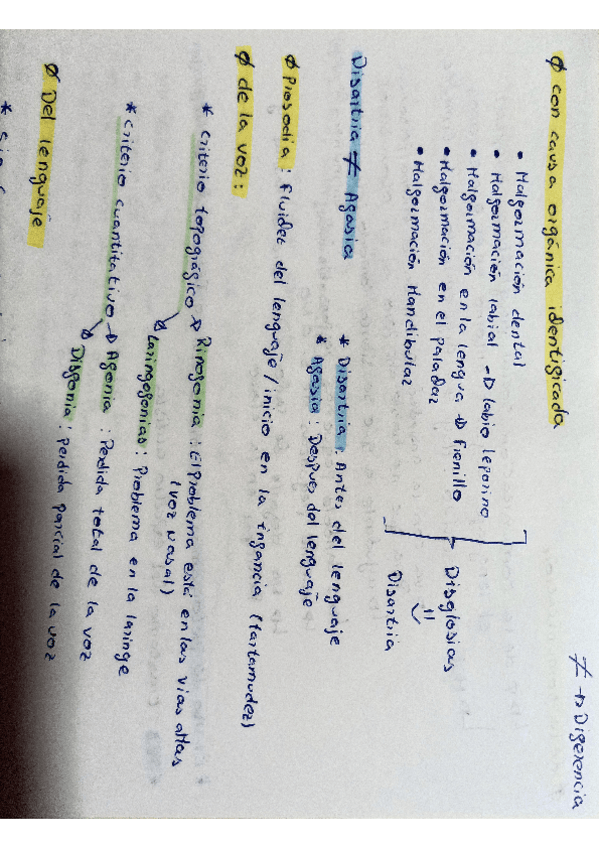 ≠ → Diferencia
Ø con causa orgánica identificada
• Malformación dental
• Malformación labial → labio leporino
• Malformación en la lengua → Frenillo
• Malformación en el paladar
• Malformación Mandibular
Disglosias
=
Disartria
Disartria ≠ Afasia
* Disartria: Antes del lenguaje
* Afasia: Despues del lenguaje
Ø Prosodia: fluidez del lenguaje / inicio en la infancia (tartamudez)
Ø de la voz:
* criterio topográfico → Rinofonia: El problema está en las vias altas
(voz nasal)
→ Laringofonias: Problema en la laringe
* criterio cuantitativo → Afonia: Perdida total de la voz
→ Disfonia: perdida parcial de la voz
Ø Del lenguaje